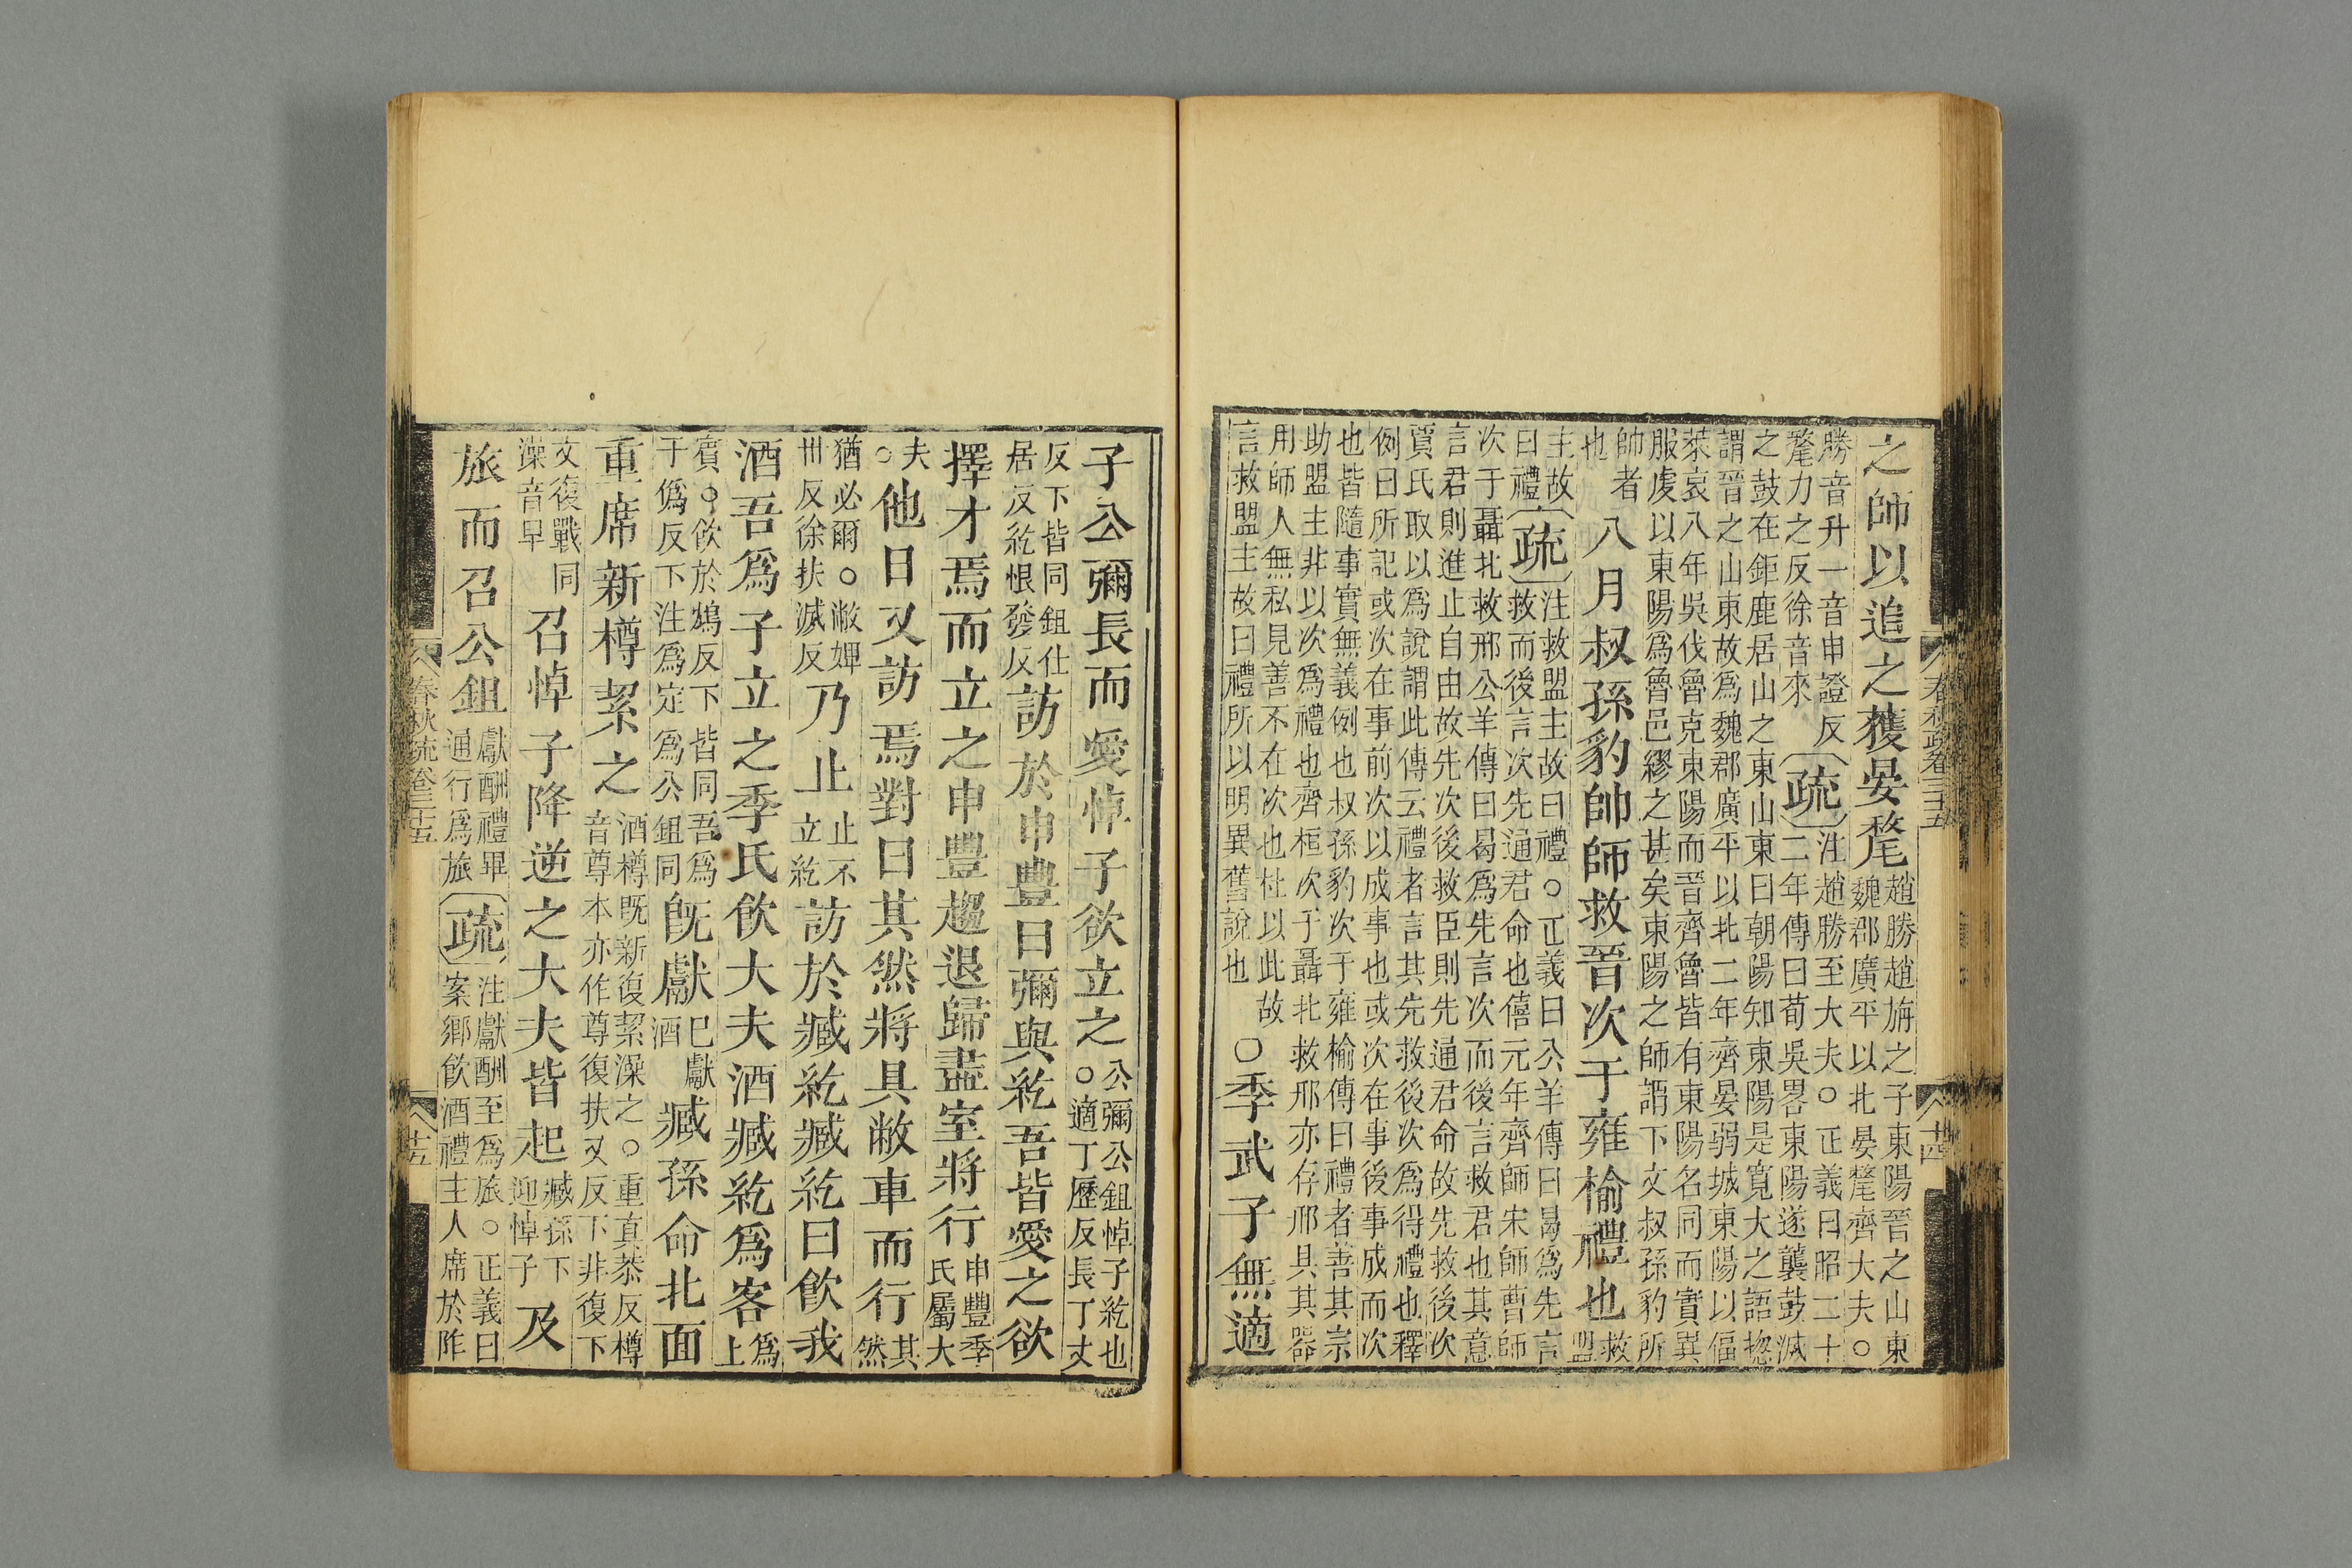 之師以追之獲晏氂趙勝趙旃之子東陽晉之山東
魏郡廣平以北晏氂齊大夫○
勝音升一音申證反
氂力之反徐音來疏注趙勝至大夫○正義曰昭二十
二年傳曰荀吳畧東陽遂襲鼓滅
之鼓在鉅鹿居山之東山東曰朝陽知東陽是寬大之語揔
謂晉之山東故爲魏郡廣平以北二年齊晏弱城東陽以偪
萊哀八年吳伐魯克東陽而晉齊魯皆有東陽名同而實異
服虔以東陽爲魯邑繆之甚矣東陽之師謂下文叔孫豹所
帥者
也八月叔孫豹帥師救晉次于雍榆禮也救
盟
主故
曰禮疏注救盟主故曰禮○正義曰公羊傳曰曷爲先言
救而後言次先通君命也僖元年齊師宋師曹師
次于聶北救邢公羊傳曰曷爲先言次而後言救君也其意
言君則進止自由故先次後救臣則先通君命故先救後次
賈氏取以爲說謂此傳云禮者言其先救後次爲得禮也釋
例曰所記或次在事前次以成事也或次在事後事成而次
也皆隨事實無義例也叔孫豹次于雍榆傳曰禮者善其宗
助盟主非以次爲禮也齊桓次于聶北救邢亦存邢具其器
用師人無私見善不在次也杜以此故
言救盟主故曰禮所以明異舊說也○季武子無適
春秋疏卷三十五
十四
子公彌長而愛悼子欲立之公彌公鉏悼子紇也
○適丁歷反長丁丈
反下皆同鉏仕
居反紇恨發反訪於申豐曰彌與紇吾皆愛之欲
擇才焉而立之申豐趨退歸盡室將行申豐季
氏屬大
夫
○他日又訪焉對曰其然將具敝車而行其
然
猶必爾○敝婢
世反徐扶滅反乃止止不
立紇訪於臧紇臧紇曰飲我
酒吾爲子立之季氏飲大夫酒臧紇爲客爲
上
賓○飲於鴆反下皆同吾爲
于僞反下注爲定爲公鉏同既獻已獻
酒臧孫命北面
重席新樽絜之酒樽既新復絜澡之○重直恭反樽
音尊本亦作尊復扶又反下非復下
文復戰同
澡音早召悼子降逆之大夫皆起臧孫下
迎悼子及
旅而召公鉏獻酬禮畢
通行爲旅疏注獻酬至爲旅○正義曰
案鄉飲酒禮主人席於阼
春秋疏卷三十五
十五